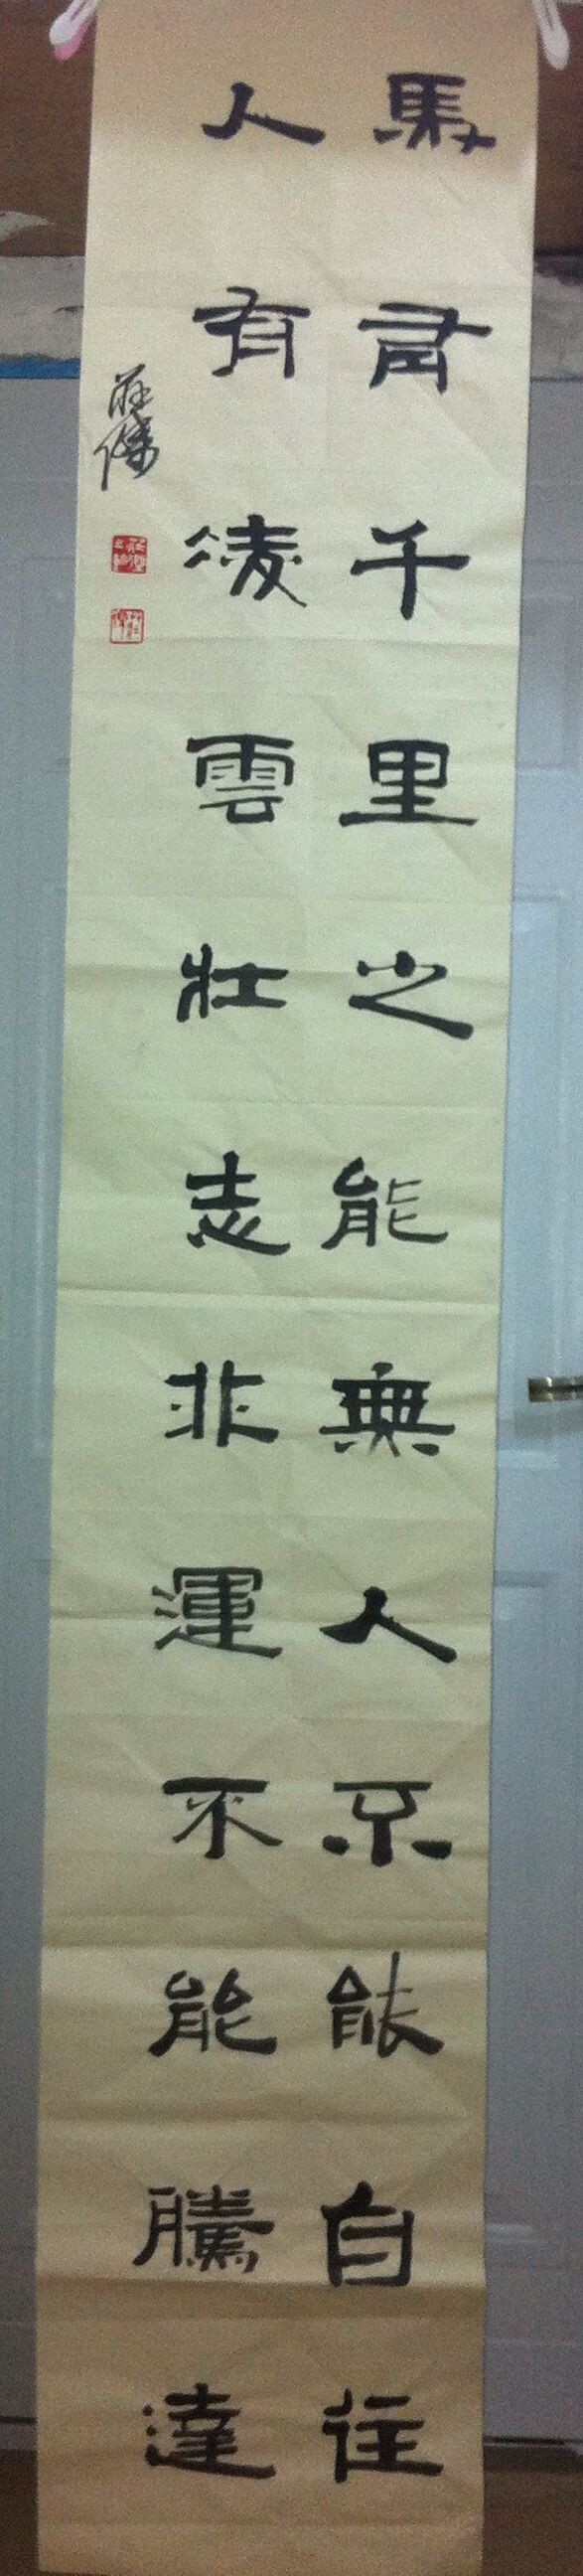 馬有千里之能無人不能自往
人有凌雲壯志非運不能騰達
莊傑